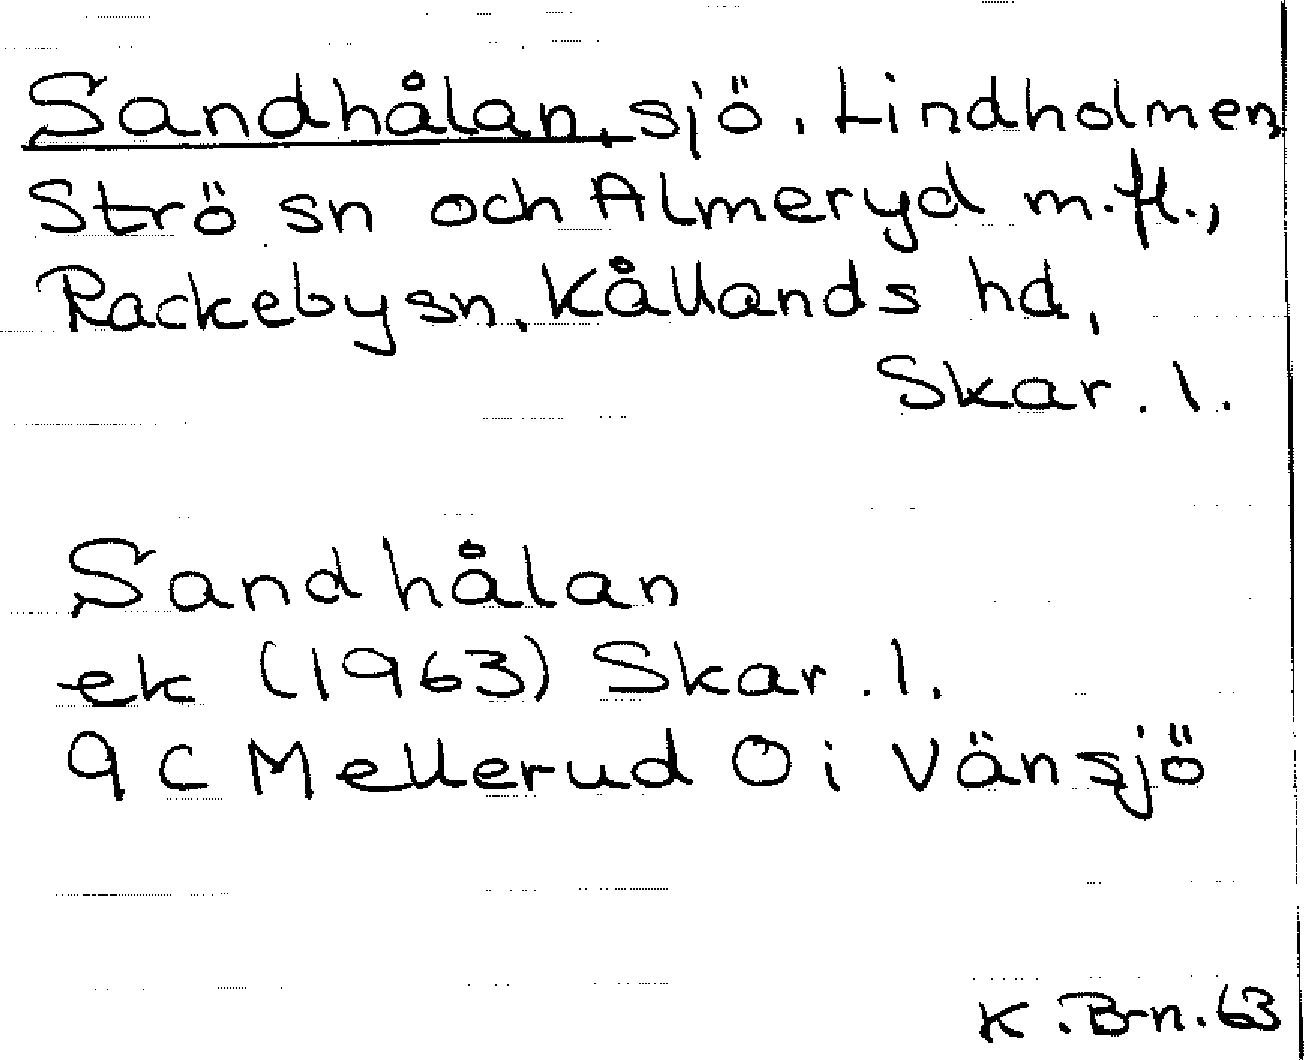 Sandhålan, sjö. Lindholmen,
Strö sn och Almeryd m.fl.,
Rackeby sn, Kållands hd,
Skar. l.
Sandhålan
ek (1963) Skar. l.
9 C Mellerud Ö i Vänsjö
K. B-n. 63